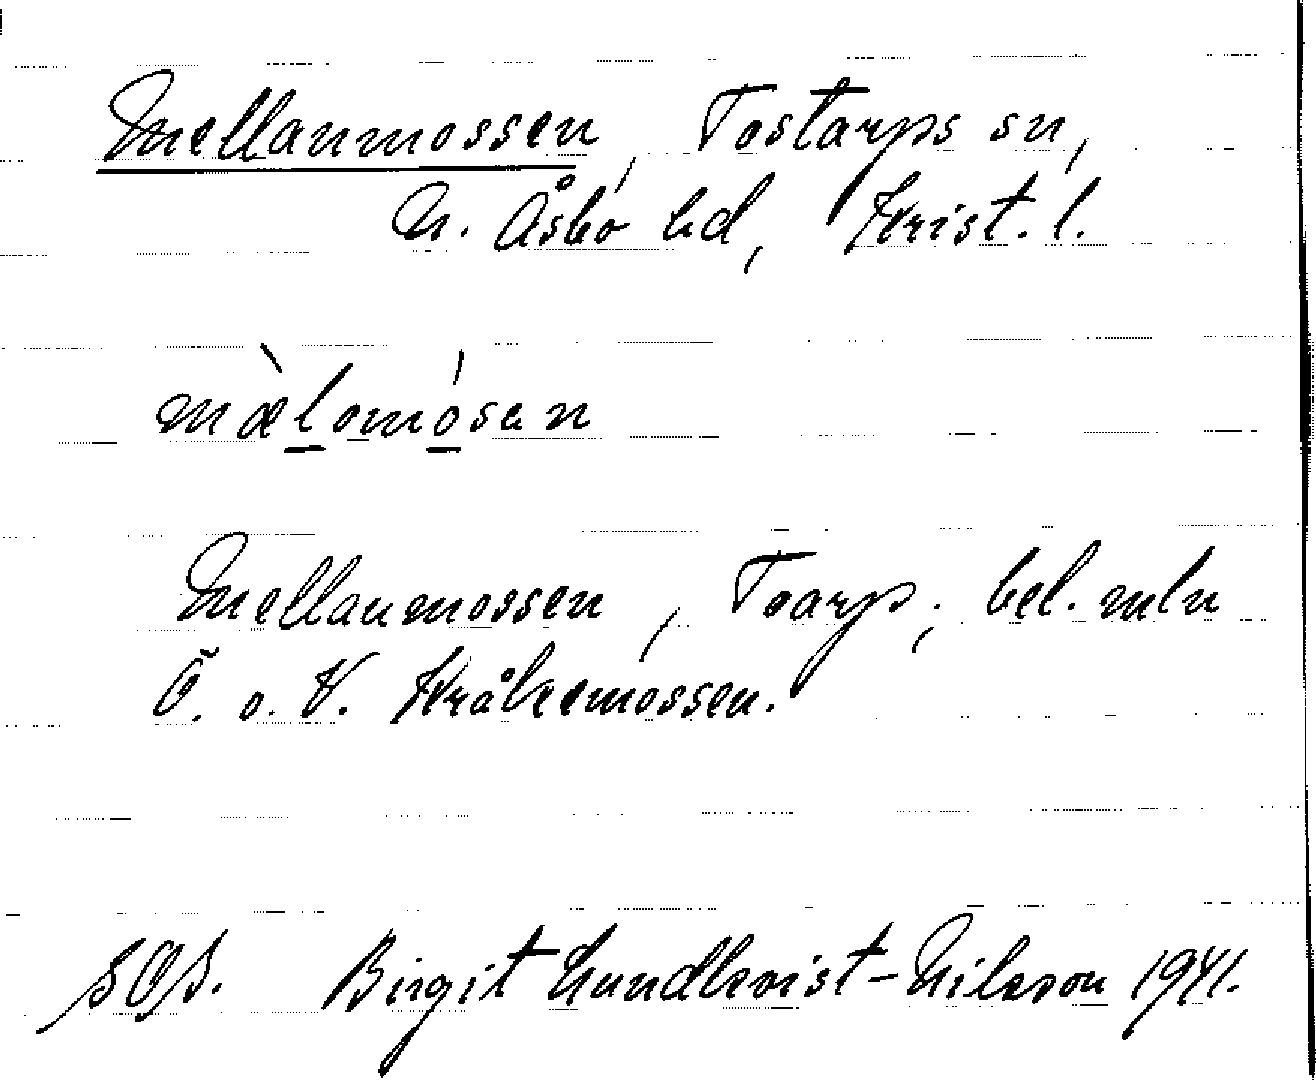 Mellanmossen, Tostarps sn,
N. Åsbo hd, Krist. l.
mæ̀lomósan
Mellanmossen, Toarp; bel. mln
Ö. o. V. Kråkemossen.
SOS. Birgit Lundkvist-Nilsson 1941.